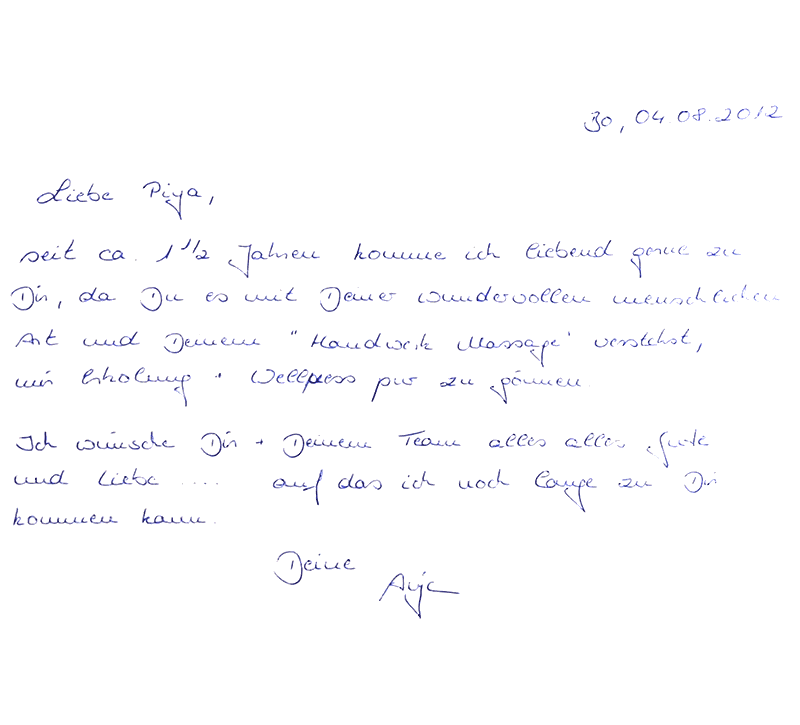 Bo, 04.08.2012
Liebe Piya,
seit ca. 1 1/2 Jahren komme ich liebend gerne zu
Dir, da Du es mit Deiner wundervollen menschlichen
Art und Deinem "Handwerk Massage" verstehst,
mir Erholung + Wellness pur zu gönnen.
Ich wünsche Dir + Deinem Team alles alles Gute
und Liebe .... auf das ich noch lange zu Dir
kommen kann.
Deine
Anja